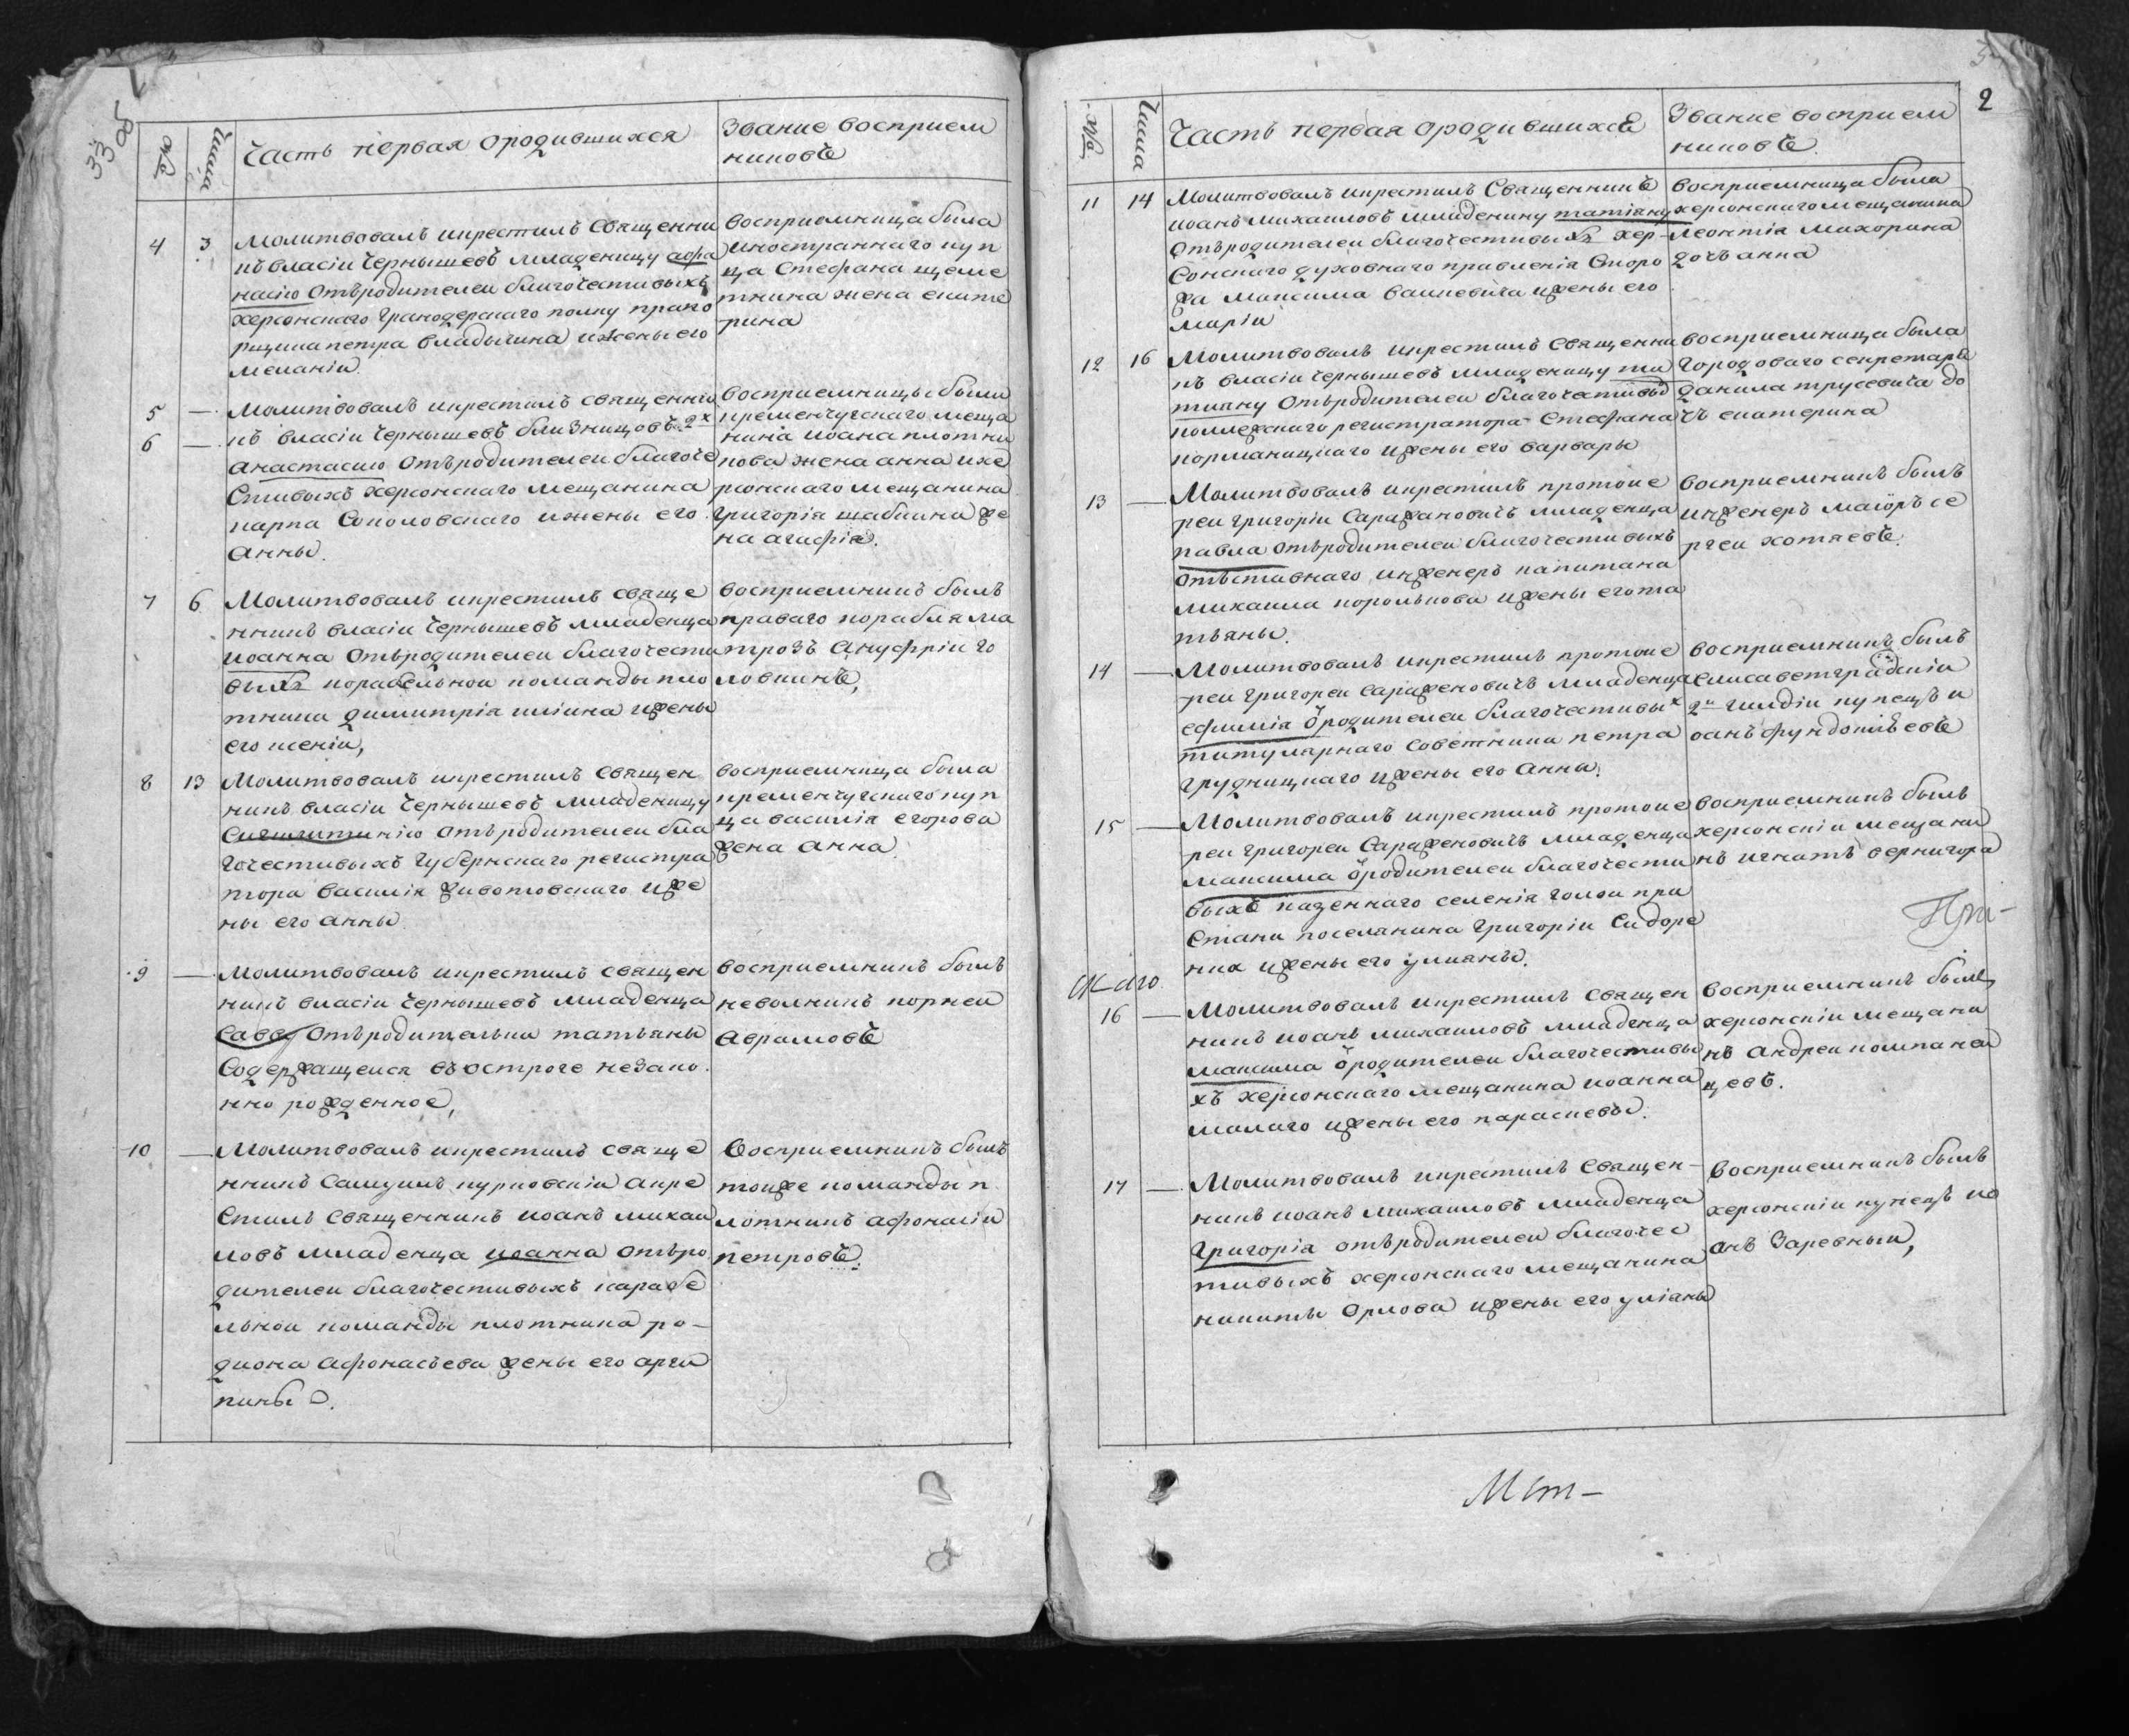 33 об
№ Числа Часть первая ородившихся Звание восприем
никовъ
4 3 Молитвовалъ икрестилъ Священни
къ власіи Чернышевъ младеницу афа
насію Отъродителеи благочестивыхъ
херсонскаго гранодерскаго полку прапо
рщика петра владыкина ижены его
меланіи.
восприемница была
иностраннаго куп
ца Стефана щеме
ткина жена екате
рина
5 — Молитвовалъ икрестилъ священни
6 — къ власіи Чернышевъ близнищовъ 2х
анастасию Отъродителеи благоче
Стивыхъ херсонскаго мещанина
карпа Соколовскаго ижены его
анны.
восприемницы были
кременчугскаго меща
нина иоана плотни
кова жена анна ихе
рсонскаго мещанина
григорія шабкина же
на агафія.
7 6 Молитвовалъ икрестилъ свяще
нникъ власіи Чернышевъ младенца
иоанна Отъродителеи благочести
выхъ корабельнои команды пло
тника димитрія иліина ижены
его ксеніи,
восприемникъ былъ
праваго корабля ма
трозъ Ануфріи го
ловкинъ,
8 13 Молитвовалъ икрестилъ священ
никъ власіи Чернышевъ младеницу
отъродителеи бла
гочестивыхъ губернскаго регистра
тора василія животовскаго иже
ны его анны
восприемница была
кременчугскаго куп
ца василія егорова
жена анна.
9 — Молитвовалъ икрестилъ священ
никъ власіи Чернышевъ младенца
савву отъродительки татьяны
Содержащеися въостроге незако
нно рожденное,
восприемникъ былъ
неволникъ корнеи
аврамовъ
10 — Молитвовалъ икрестилъ свяще
нникъ Самуилъ курковскіи акре
Стилъ Священникъ иоанъ михаи
ловъ младенца иоанна отъро
дителеи благочестивыхъ карабе
льнои команды плотника ро-
диона афонасьева жены его агри
пины.
Восприемникъ былъ
тоиже команды п
лотникъ афонасіи
петровъ.
2
№ Числа Часть первая ородившихся Звание восприем
никовъ.
11 14 Молитвовалъ икрестилъ Священникъ
иоанъ михаиловъ младенику татіяну
Отъродителеи благочестивыхъ хер-
Сонскаго духовнаго правленія Сторо
жа максима ижены его
маріи
восприемница была
херсонскаго мещанина
леонтія махорина
дочь анна
12 16 Молитвовалъ икрестилъ священни
къ власіи Чернышевъ младеницу та
тияну Отъродителеи благочестивы
коллежскаго регистратора Стефана
ижены его варвары
восприемница была
городоваго секретаря
данила трусевича до
чъ екатерина
13 — Молитвовалъ икрестилъ протоие
реи григоріи Саражановичъ младенца
павла отъродителеи благочестивыхъ
отъставнаго инженеръ капитана
михаила королькова ижены его та
тьяны.
восприемникъ былъ
инженеръ маіоръ се
ргеи хотяевъ.
14 — Молитвовалъ икрестилъ протоие
реи григореи Сараженовичъ младенца
ефимія ородителеи благочестивых
титулярнаго советника петра
грудницкаго ижены его анны.
восприемникъ былъ
елисаветградскіи
2й гилдіи купецъ и
оанъ фундоклѣевъ
15 — Молитвовалъ икрестилъ протоие
реи григореи Сараженовичъ младенца
максима ородителеи благочести
выхъ казеннаго селенія голои при
Стани поселянина григоріи Сидоре
нка ижены его улианы.
восприемникъ былъ
херсонскіи мещани
нъ игнатъ вернигора
16 — Молитвовалъ икрестилъ священ
никъ иоанъ михаиловъ младенца
максима ородителеи благочестивы
хъ херсонскаго мещанина иоанна
малаго ижены его параскевы.
восприемникъ былъ
херсонскіи мещани
нъ андреи компанеи
цевъ.
17 — Молитвовалъ икрестилъ священ-
никъ иоанъ михаиловъ младенца
григорія отъродителеи благочес
тивыхъ херсонскаго мещанина
никиты Орлова ижены его уліаны
восприемникъ былъ
херсонскіи купецъ ио
анъ Заревныи,